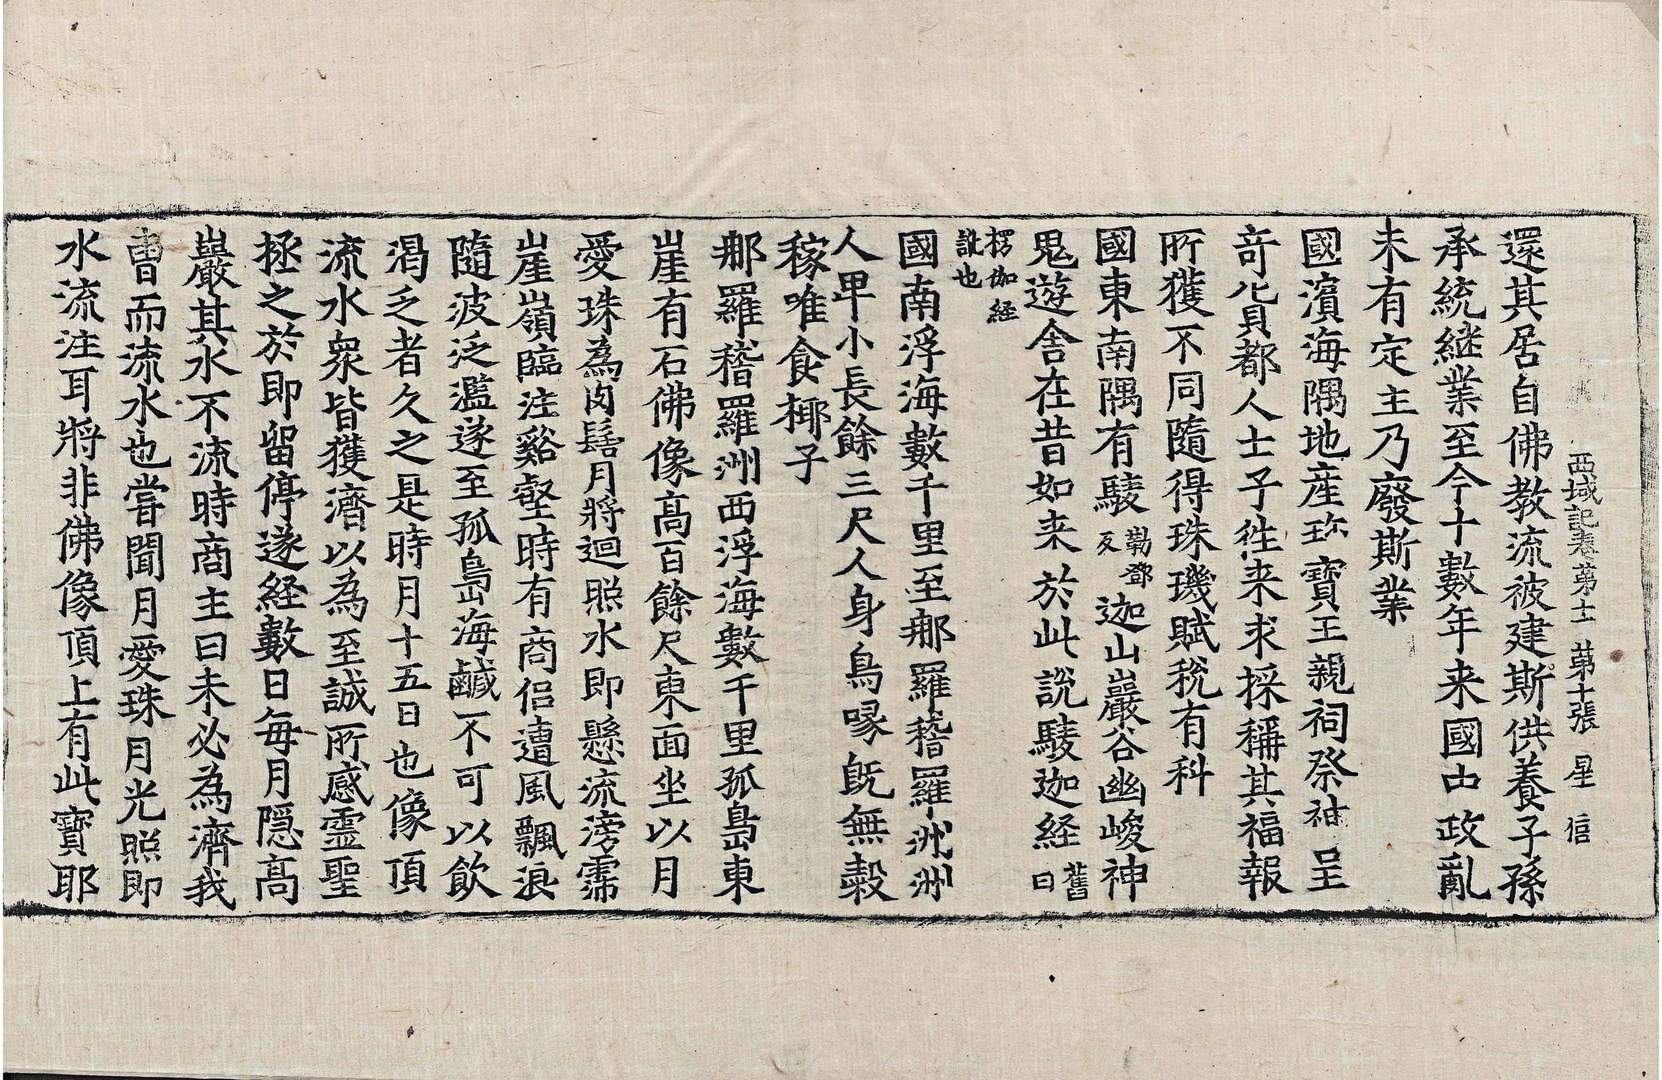 西域記卷第十一 第十張 星 信
還其居自佛教流被建斯供養子孫
承統継業至今十數年来國中政亂
未有定主乃廢斯業
國濵海隅地産珎寶王親祠祭神呈
竒貨都人士子徃来求採稱其福報
所獲不同隨得珠璣賦稅有科
國東南隅有䮚勒鄧反迦山巖谷幽峻神
鬼遊舍在昔如来於此説䮚迦経舊曰
楞伽経訛也
國南浮海數千里至郍羅稽羅洲洲
人卑小長餘三尺人身鳥喙旣無穀
稼唯食椰子
郍羅稽羅洲西浮海數千里孤島東
崖有石佛像高百餘尺東面坐以月
愛珠為肉髻月將迴照水即懸流滂霈
崖嶺臨注谿壑時有商侣遭風飄浪
隨波泛濫遂至孤島海鹹不可以飲
渇乏者久之是時月十五日也像頂
流水衆皆獲濟以為至誠所感霊聖
拯之於即留停遂経數日每月隠高
巖其水不流時商主曰未必為濟我
曹而流水也嘗聞月愛珠月光照即
水流注耳將非佛像頂上有此寶耶